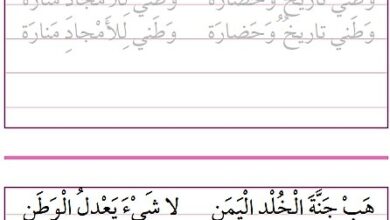 وَطَني تاريخٌ وَحَضارَة وَطَني لِلأَمْجادِ مَنارَة
وَطَني تاريخٌ وَحَضارَة وَطَني لِلأَمْجادِ مَنارَة
هَبْ جَنَّةَ الْخُلْدِ الْيَمَن لا شَيْءَ يَعْدِلُ الْوَطَن